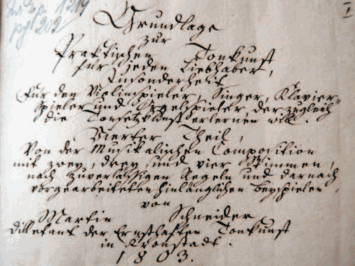 Grundlage
zur
Praktischen Tonkunst
für jeden Liebhaber,
Insonderheit
Für den Violinspieler, Singer, Klavier-
spieler und Orgelspieler, der zugleich
die Tonsetzkunst erlernen will.
Vierter Theil,
Von der Musikalischen Composition
mit zwey, drey, und vier Stimmen,
nach zuverlässigen Regeln und darnach
vorgearbeiteten hinlänglichen Beyspielen,
von
Martin Schneider
dilletant der Ernsthaften Tonkunst
in Kronstadt.
1803.